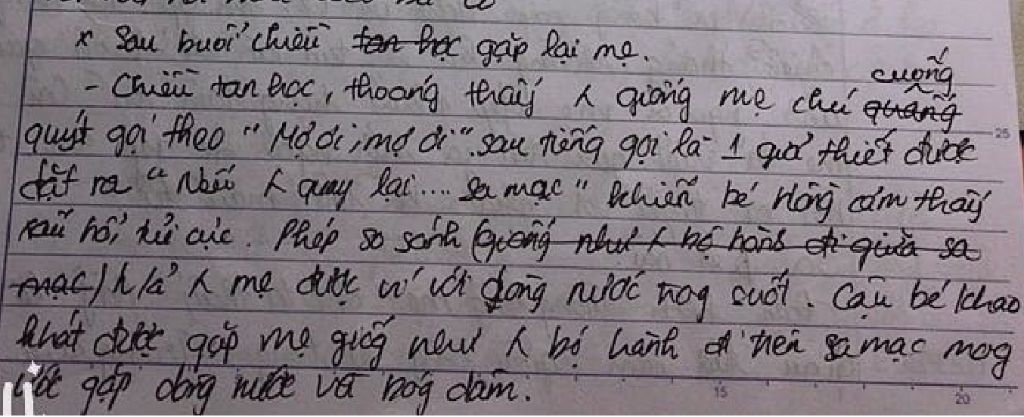 x Sau buổi chiều tan học gặp lại mẹ.
cuống
- Chiều tan học, thoáng thấy k giống mẹ chú quẫng
quýt gọi theo "Mợ ơi, mợ ơi" sau tiếng gọi là 1 giả thiết được
đặt ra "Nếu k quay lại.... sa mạc" khiến bé Hồng cảm thấy
xấu hổ, tủi cực. Phép so sánh (giống như k bộ hành đi giữa sa
mạc) h/ả k mẹ được ví với dòng nước trog suốt. Cậu bé khao
khát được gặp mẹ giốg như k bộ hành đi trên sa mạc mog
gặp dòng nước và bóg dâm.
15
20
25